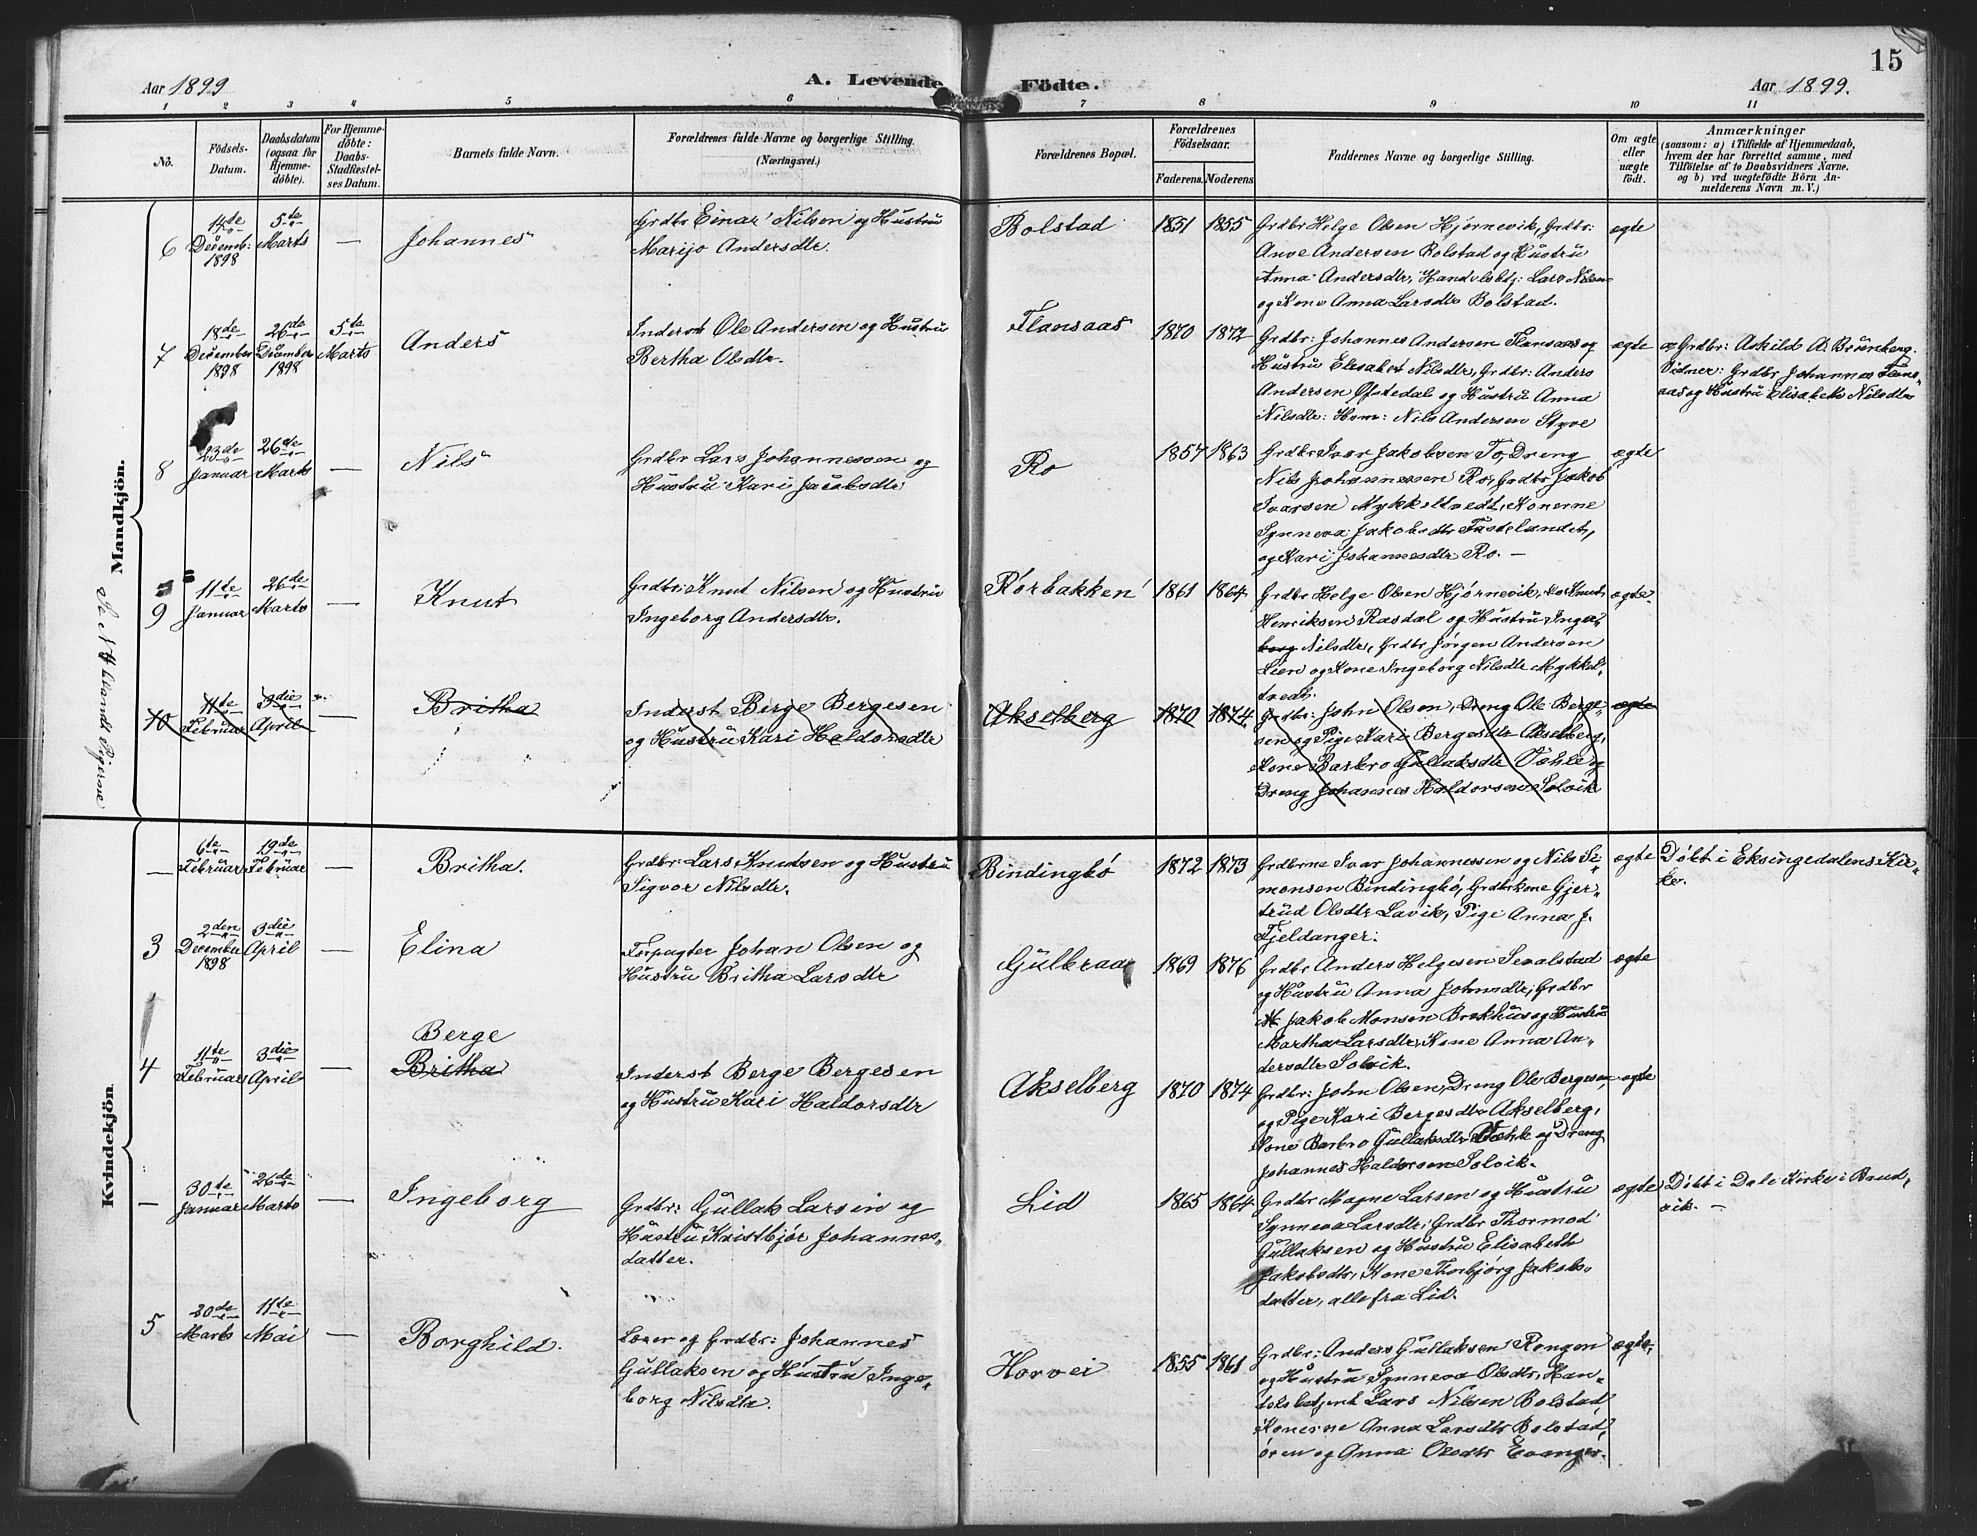 15
Aar 1899
A. Levende Födte.
Aar 1899.
1 2 3 4 5 6 7 8 9 10 11
No.
Födsels-
Datum.
Daabsdatum
(ogsaa for
Hjemme-
döbte).
For Hjemme-
döbte:
Daabs-
Stadfæstel-
ses Datum.
Barnets fulde Navn.
Forældrenes fulde Navne og borgerlige Stilling.
(Næringsvei.)
Forældrenes Bopæl.
Forældrenes
Födselsaar.
Faderens. Moderens
Faddernes Navne og borgerlige Stilling.
Om ægte
eller
uægte
födt.
Anmærkninger
(saasom: a) i Tilfælde af Hjemmedaab,
hvem der har forrettet samme, med
Tilföielse af to Daabsvidners Navne.
og b) ved uægtefödte Börn An-
melderens Navn m. V.)
Mandkjön.
6
14de
Decemb:
1898
5te
Marts
—
Johannes
Grdbr Einar Nilsen og Hustru
Marijo Andersdtr.
Bolstad
1851 1855
Grdbr Helge Olsen Hjørnevik, Grdbr:
Anve Andersen Bolstad og Hustru
Anna Andersdtr, Handelsbtj: Lars Nilsen
og Kone Anna Larsdtr Bolstad.
ægte
7
18de
December
1898
26de
December
1898
5te
Marts
Anders
Inderst Ole Andersen og Hustru
Bertha Olsdtr.
Flansaas
1870 1872
Grdbr: Johannes Andersen Flansaas og
Hustru Elisabet Nilsdtr, Grdbr: Anders
Andersen Øfstedal og Hustru Anna
Nilsdtr: Hom: Nils Andersen Styve
ægte
a Grdbr: Askild A. Brünborg.
Vidner: Grdbr Johannes Flans-
aas og Hustru Elisabeth Nilsdtr
8
23de
Januar
26de
Marts
—
Nils
Grdbr Lars Johannessen og
Hustru Kari Jacobsdtr
Ro
1857 1863
Grdbr Ivar Jakobsen To, Dreng
Nils Johannessen Ro, Grdbr Jakob
Ivarsen Mykkeltvedt, Konerne
Synneva Jakobsdtr Fasteland,
og Kari Johannesdtr Ro. —
ægte
9
11te
Januar
26de
Marts
—
Knut
Grdbr: Knut Nilsen og Hustru
Ingeborg Andersdtr.
Rørbakken
1861 1864
Grdbr Helge Olsen Hjørnevik, Knut
Henriksen Rasdal og Hustru Inge-
borg Nilsdtr, Grdbr Jørgen Andersen
Lien og Kone Ingeborg Nilsdtr Mykkel-
tvedt.
ægte.
Se No 4 blandt Pigerne
10
11te
Februar
3die
April
—
Britha
Inderst Berge Bergesen
og Hustru Kari Haldorsdtr
Akselberg
1870 1874
Grdbr: John Olsen, Dreng Ole Berge-
sen og Pige Kari Bergesdtr Akselberg,
Kone Barbro Gullaksdtr Væhle og
Dreng Johannes Haldorsen Solvik
ægte
Kvindekjön
—
6te
Februar
19de
Februar
—
Britha.
Grdbr: Lars Knutsen og Hustru
Sigvor Nilsdtr.
Bindingbø
1872 1873
Grdbrne Ivar Johannessen og Nils Si-
monsen Bindingbø, Grdbrkone Gjer-
trud Olsdtr Lavik, Pige Anna J.
Fjeldanger.
ægte
Døbt i Eksingedalens Kir-
ke.
3
2den
December
1898
3die
April
—
Elina
Forpagter Johan Olsen og
Hustru Britha Larsdtr
Gülbraa
1869 1876
Grdbr Anders Helgesen Sevalstad
og Hustru Anna Johnsdtr, Grdbr
Jakob Monsen Brekhus og Hustru
Martha Larsdtr, Kone Anna An-
dersdtr Solvik.
ægte
4
11te
Februar
3die
April
—
Berge
Britha
Inderst Berge Bergesen
og Hustru Kari Haldorsdtr
Akselberg
1870 1874
Grdbr: John Olsen, Dreng Ole Bergesen
og Pige Kari Bergesdtr Akselberg,
Kone Barbro Gullaksdtr Væhle og Dreng
Johannes Haldorsen Solvik.
ægte
—
30te
Januar
26de
Marts
—
Ingeborg
Grdbr: Gullak Larsen og
Hustru Kristbjør Johannes-
datter.
Lid
1865 1864
Grdbr Magne Larsen og Hustru
Synneva Larsdtr, Grdbr Thormod
Gullaksen og Hustru Elisabeth
Jakobsdtr, Kone Thorbjørg Jakobs-
datter, alle fra Lid.
ægte
Døbt i Dale Kirke i Brud-
vik. —
5
20de
Marts
11te
Mai
—
Borghild.
Lærer og Grdbr: Johannes
Gullaksen og Hustru Inge-
borg Nilsdtr.
Horvei
1855 1861
Grdbr: Anders Gullaksen Rongen
og Hustru Synneva Olsdtr, Han-
delsbetjent Lars Nilsen Bolstad,
Konerne Anna Larsdtr Bolstad-
øren og Anna Olsdtr Evanger.
ægte,